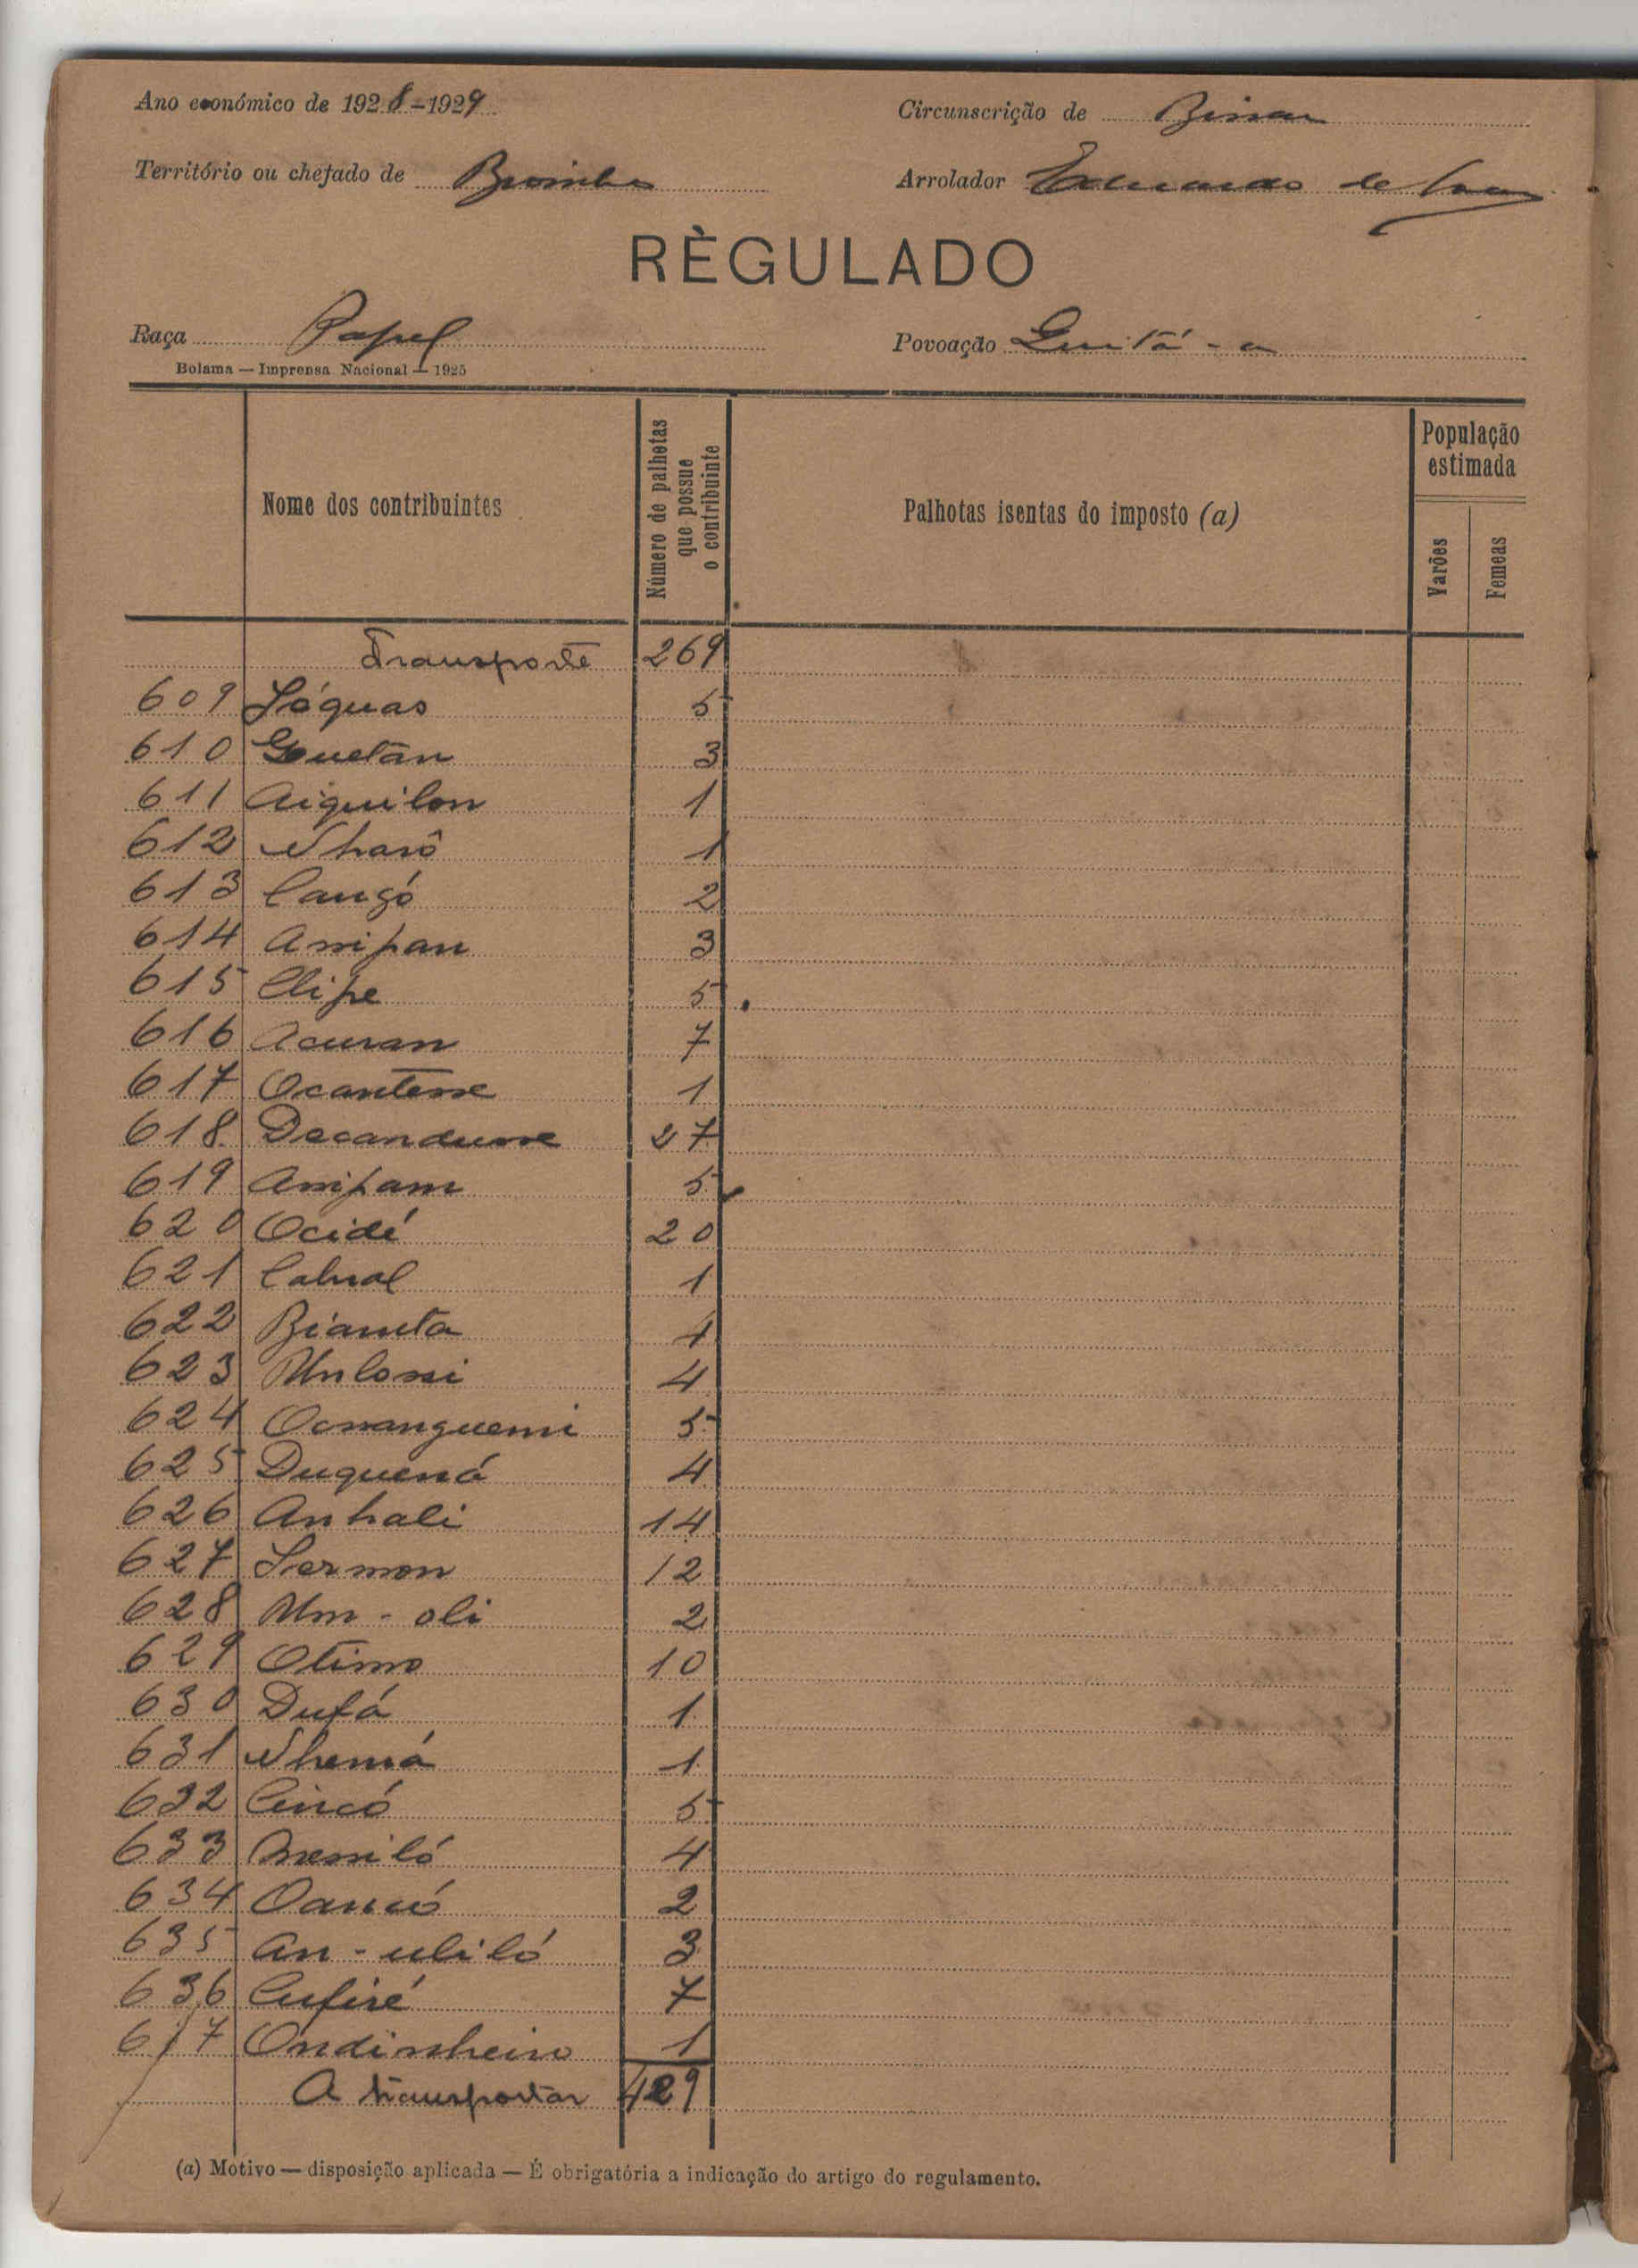 Ano económico de 1928-1929
Circunscrição de Bissau
Território ou chefado de
Arrolador de
RÈGULADO
Raça Papel
Povoação Quitá-a
Bolama — Imprensa Nacional — 1925
Nome dos contribuintes
Número de palhotas que possue o contribuinte
Palhotas isentas do imposto (a)
População estimada
Varões
Femeas
Transporte 269
609 Sóguas 5
610 Guetan 3
611 Aiguilon 1
612 Nharô 1
613 Cangó 2
614 Assipan 3
615 Clipe 5
616 Acuran 7
617 Ocantesse 1
618 Decandusse 27
619 Assipam 5
620 Ocidé 20
621 Cabral 1
622 Bianeta 1
623 4
624 5
625 Duguená 4
626 Anhali 14
627 Sermon 12
628 Um-oli 2
629 Otimo 10
630 Dufá 1
631 Nhemá 1
632 Cincó 5
633 4
634 2
635 An-uliló 3
636 Cufiré 7
637 Ondinheiro 1
A transportar 429
(a) Motivo — disposição aplicada — É obrigatória a indicação do artigo do regulamento.